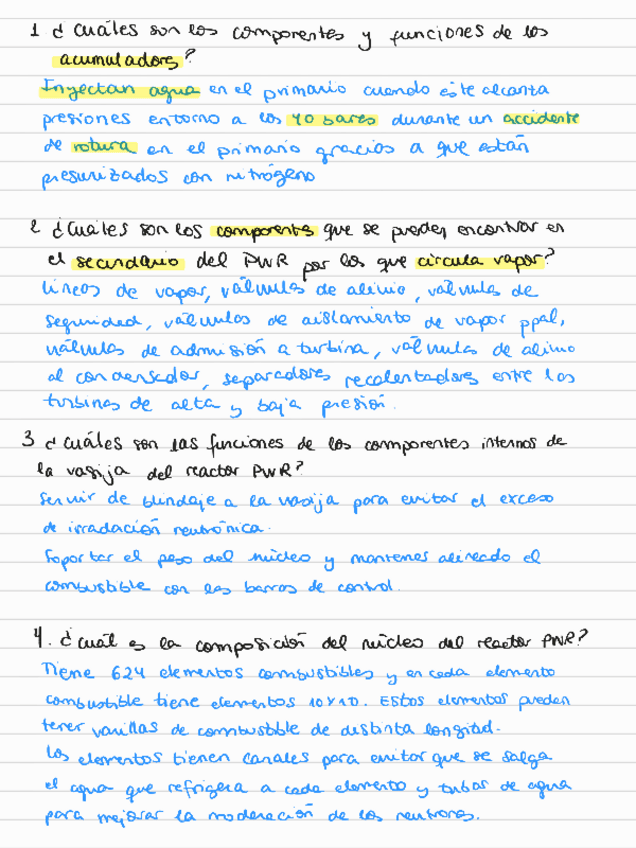 1 ¿Cuáles son los componentes y funciones de los
acumuladores?
Inyectan agua en el primario cuando este alcanza
presiones entorno a los 40 bares durante un accidente
de rotura en el primario gracias a que están
presurizados con nitrógeno
2 ¿Cuáles son los componentes que se pueden encontrar en
el secundario del PWR por los que circula vapor?
Líneas de vapor, válvulas de alivio, válvulas de
seguridad, válvulas de aislamiento de vapor ppal,
válvulas de admisión a turbina, válvulas de alivio
al condensador, separadores recalentadores entre las
turbinas de alta y baja presión.
3 ¿Cuáles son las funciones de los componentes internos de
la vasija del reactor PWR?
Servir de blindaje a la vasija para evitar el exceso
de irradación neutrónica.
Soportar el peso del núcleo y mantener alineado el
combustible con las barras de control.
4. ¿Cuál es la composición del núcleo del reactor PWR?
Tiene 624 elementos combustibles y en cada elemento
combustible tiene elementos 10x10. Estos elementos pueden
tener varillas de combustible de distinta longitud.
Los elementos tienen canales para evitar que se salga
el agua que refrigera a cada elemento y tubos de agua
para mejorar la moderación de los neutrones.